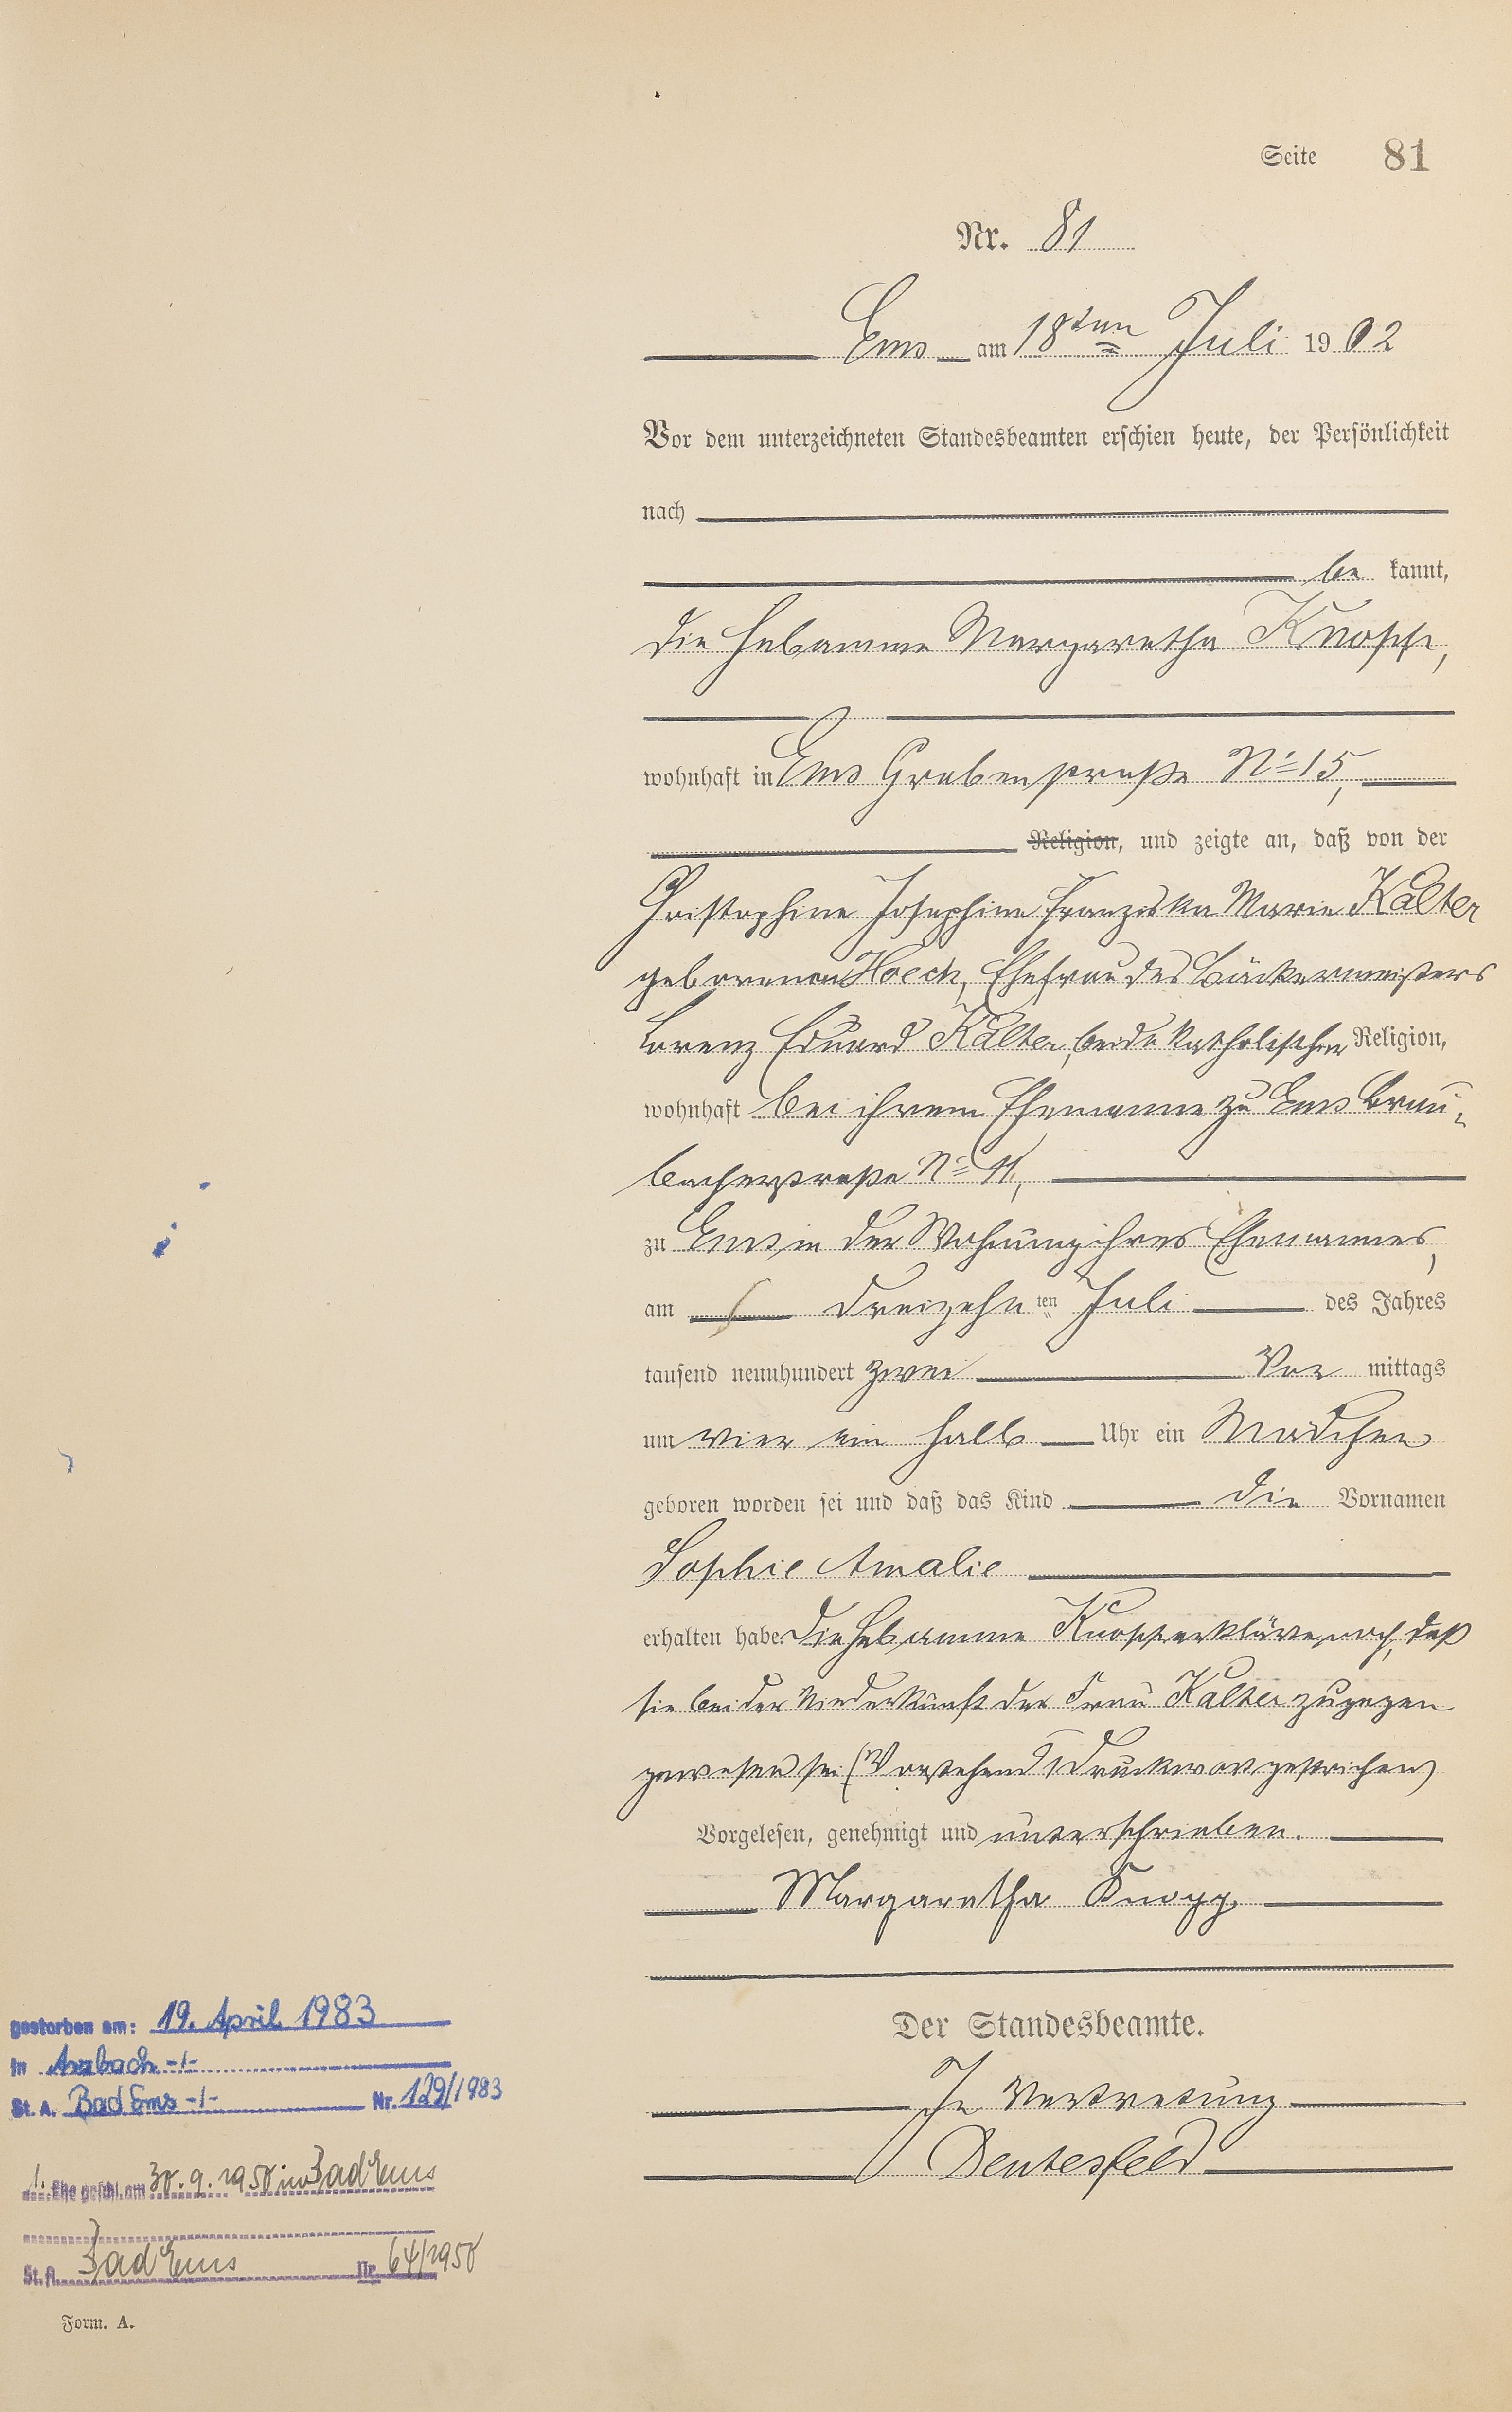 Seite 81
Nr. 81
Ems am 18ten Juli 1902
Vor dem unterzeichneten Standesbeamten erschien heute, der Persönlichkeit
nach
be kannt,
die Hebamme Margaretha Knopp,
wohnhaft in Ems Grabenstraße No 15,
Religion, und zeigte an, daß von der
Christophine Josephine Franziska Marie Kalter
geborenen Hoech, Ehefrau des Bäckermeisters
Lorenz Eduard Kalter, beide katholischer Religion,
wohnhaft bei ihrem Ehemanne zu Ems Brau-
bacherstraße No 11,
zu Ems in der Wohnung ihres Ehemannes,
am dreizehnten Juli des Jahres
tausend neunhundert zwei Vor mittags
um vier ein halb Uhr ein Mädchen
geboren worden sei und daß das Kind die Vornamen
Sophie Amalie
erhalten habe. Die Hebamme Knopp erklärte noch, daß
sie bei der Niederkunft der Frau Kalter zugegen
gewesen sei (Vorstehend 1 Druckwort gestrichen)
Vorgelesen, genehmigt und unterschrieben.
Margaretha Knopp
Der Standesbeamte.
In Vertretung
gestorben am: 19. April 1983
in Arzbach -/-
St. A. Bad Ems -/- Nr. 129/1983
1. Ehe geschl. am 30.9.1950 in Bad Ems
St. A. Bad Ems Nr. 64/1950
Form. A.